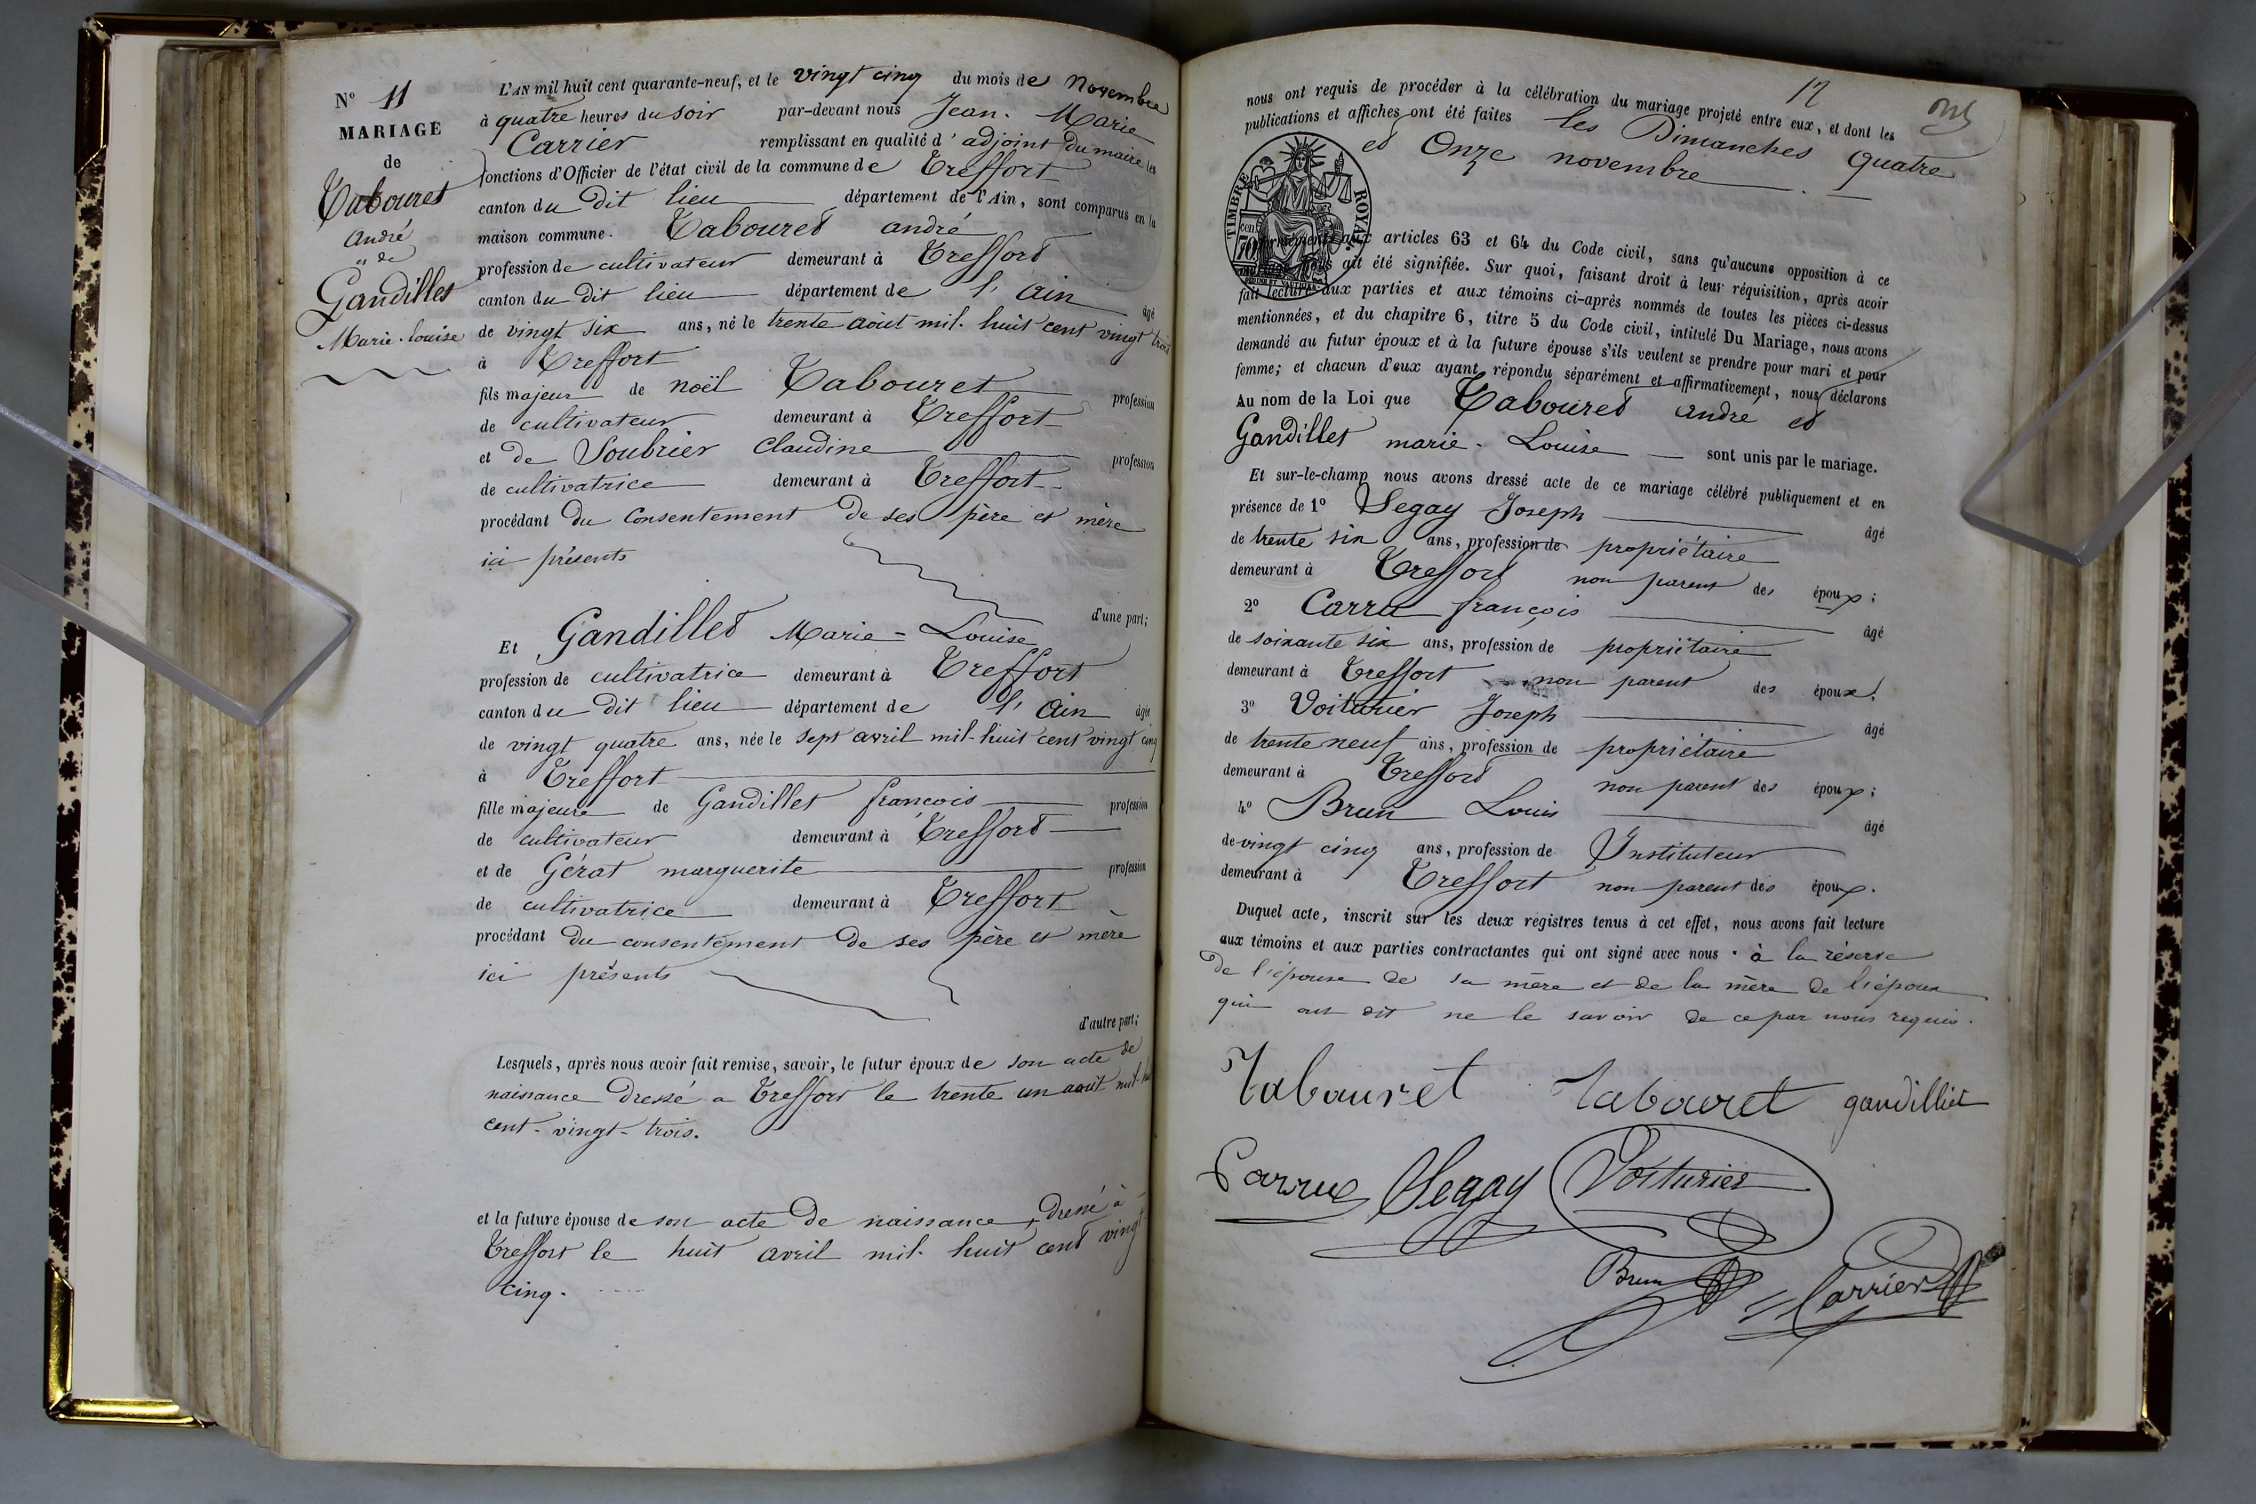 N° 11
MARIAGE
de
Tabouret
André
et de
Gandillet
Marie-louise
L'AN mil huit cent quarante-neuf, et le vingt cinq du mois de Novembre
à quatre heures du soir par-devant nous Jean-Marie
Carrier remplissant en qualité d'adjoint du maire les
fonctions d'Officier de l'état civil de la commune de Treffort
canton du dit lieu département de l'Ain, sont comparus en la
maison commune. Tabouret andré
profession de cultivateur demeurant à Treffort
canton du dit lieu département de l'Ain âgé
de vingt six ans, né le trente aout mil-huit cent vingt trois
à Treffort
fils majeur de noël Tabouret profession
de cultivateur demeurant à Treffort
et de Soubrier Claudine profession
de cultivatrice demeurant à Treffort
procédant du Consentement de ses père et mère
ici présents
d'une part;
Et Gandillet Marie-Louise
profession de cultivatrice demeurant à Treffort
canton du dit lieu département de l'Ain âgée
de vingt quatre ans, née le sept avril mil-huit cent vingt cinq
à Treffort
fille majeure de Gandillet françois profession
de cultivateur demeurant à Treffort
et de Gérat marguerite profession
de cultivatrice demeurant à Treffort
procédant du consentement de ses père et mère
ici présents
d'autre part;
Lesquels, après nous avoir fait remise, savoir, le futur époux de son acte de
naissance dressé a Treffort le trente un aout mil-huit
cent-vingt-trois.
et la future épouse de son acte de naissance, dressé à
Treffort le huit avril mil-huit cent vingt
cinq.
12
nous ont requis de procéder à la célébration du mariage projeté entre eux, et dont les
publications et affiches ont été faites les Dimanches quatre
et Onze novembre
TIMBRE ROYAL
70 cen.
conformément aux articles 63 et 64 du Code civil, sans qu'aucune opposition à ce
mariage nous ait été signifiée. Sur quoi, faisant droit à leur réquisition, après avoir
fait lecture aux parties et aux témoins ci-après nommés de toutes les pièces ci-dessus
mentionnées, et du chapitre 6, titre 5 du Code civil, intitulé Du Mariage, nous avons
demandé au futur époux et à la future épouse s'ils veulent se prendre pour mari et pour
femme; et chacun d'eux ayant répondu séparément et affirmativement, nous déclarons
Au nom de la Loi que Tabouret andré et
Gandillet marie-Louise sont unis par le mariage.
Et sur-le-champ nous avons dressé acte de ce mariage célébré publiquement et en
présence de 1° Segay Joseph âgé
de trente six ans, profession de propriétaire
demeurant à Treffort non parent des époux;
2° Carru françois âgé
de soixante six ans, profession de propriétaire
demeurant à Treffort non parent des époux;
3° Voiturier Joseph âgé
de trente neuf ans, profession de propriétaire
demeurant à Treffort non parent des époux;
4° Brun Louis âgé
de vingt cinq ans, profession de Instituteur
demeurant à Treffort non parent des époux.
Duquel acte, inscrit sur les deux registres tenus à cet effet, nous avons fait lecture
aux témoins et aux parties contractantes qui ont signé avec nous. à la réserve
de l'épouse de sa mère et de la mère de l'époux
qui ont dit ne le savoir de ce par nous requis.
Tabouret Tabouret gandilliet
Carru Segay Voiturier
Brun Carrier